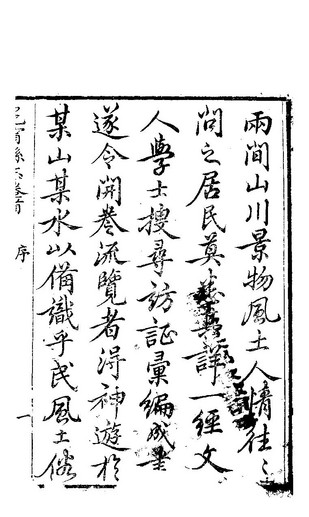 兩間山川景物風土人情往〻
問之居民莫詳一經文
人學士搜尋訪証彙編成書
遂令開卷流覽者淂神遊扵
某山某水以備識乎民風土俗
縣卷首 序 一